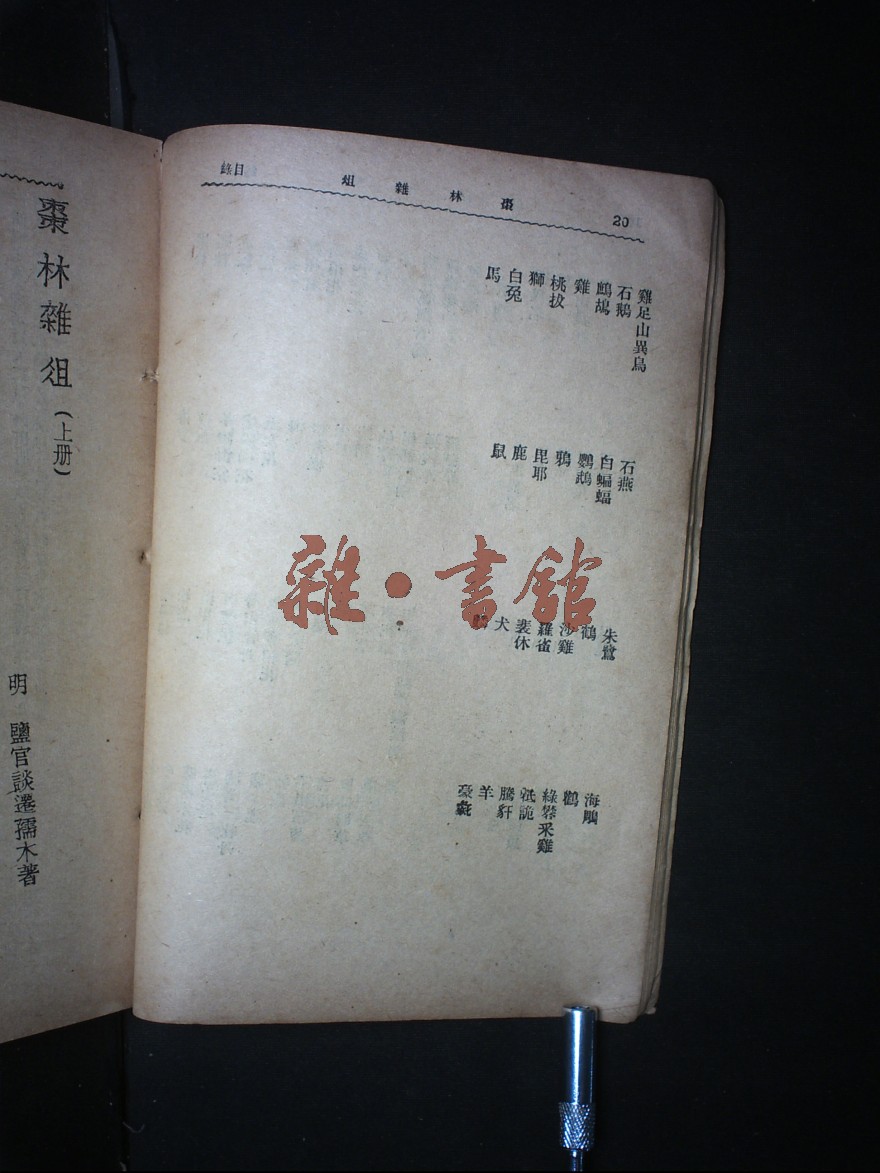 20
棗林雜俎
目錄
雞足山異鳥 石燕 朱鷺 海鵰
石鵝 白蝙蝠 鶴 鸛
鷓鴣 鸚鵡 沙雞 綠攀采雞
雞 鴉 羅雀
桃拔 毘耶 裴休 騰豻
獅 鹿 犬 羊
白兔 鼠 豪彘
馬
棗林雜俎(上册)
明 鹽官談遷孺木著
雜·書館